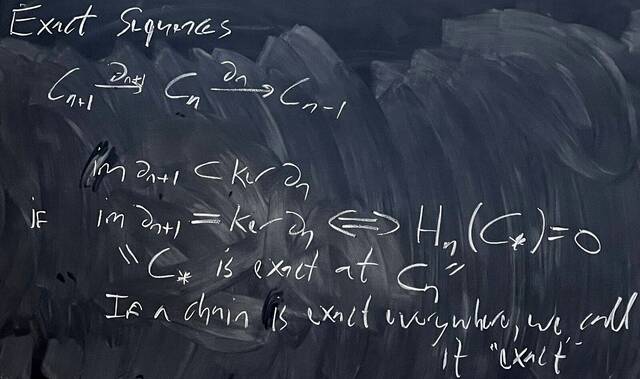 Exact Sequences
C_{n+1} \xrightarrow{∂_{n+1}} C_n \xrightarrow{∂_n} C_{n-1}
im ∂_{n+1} ⊂ ker ∂_n
if im ∂_{n+1} = ker ∂_n ⟺ H_n(C_*)=0
"C_* is exact at C_n"
If a chain is exact everywhere, we call
it "exact"